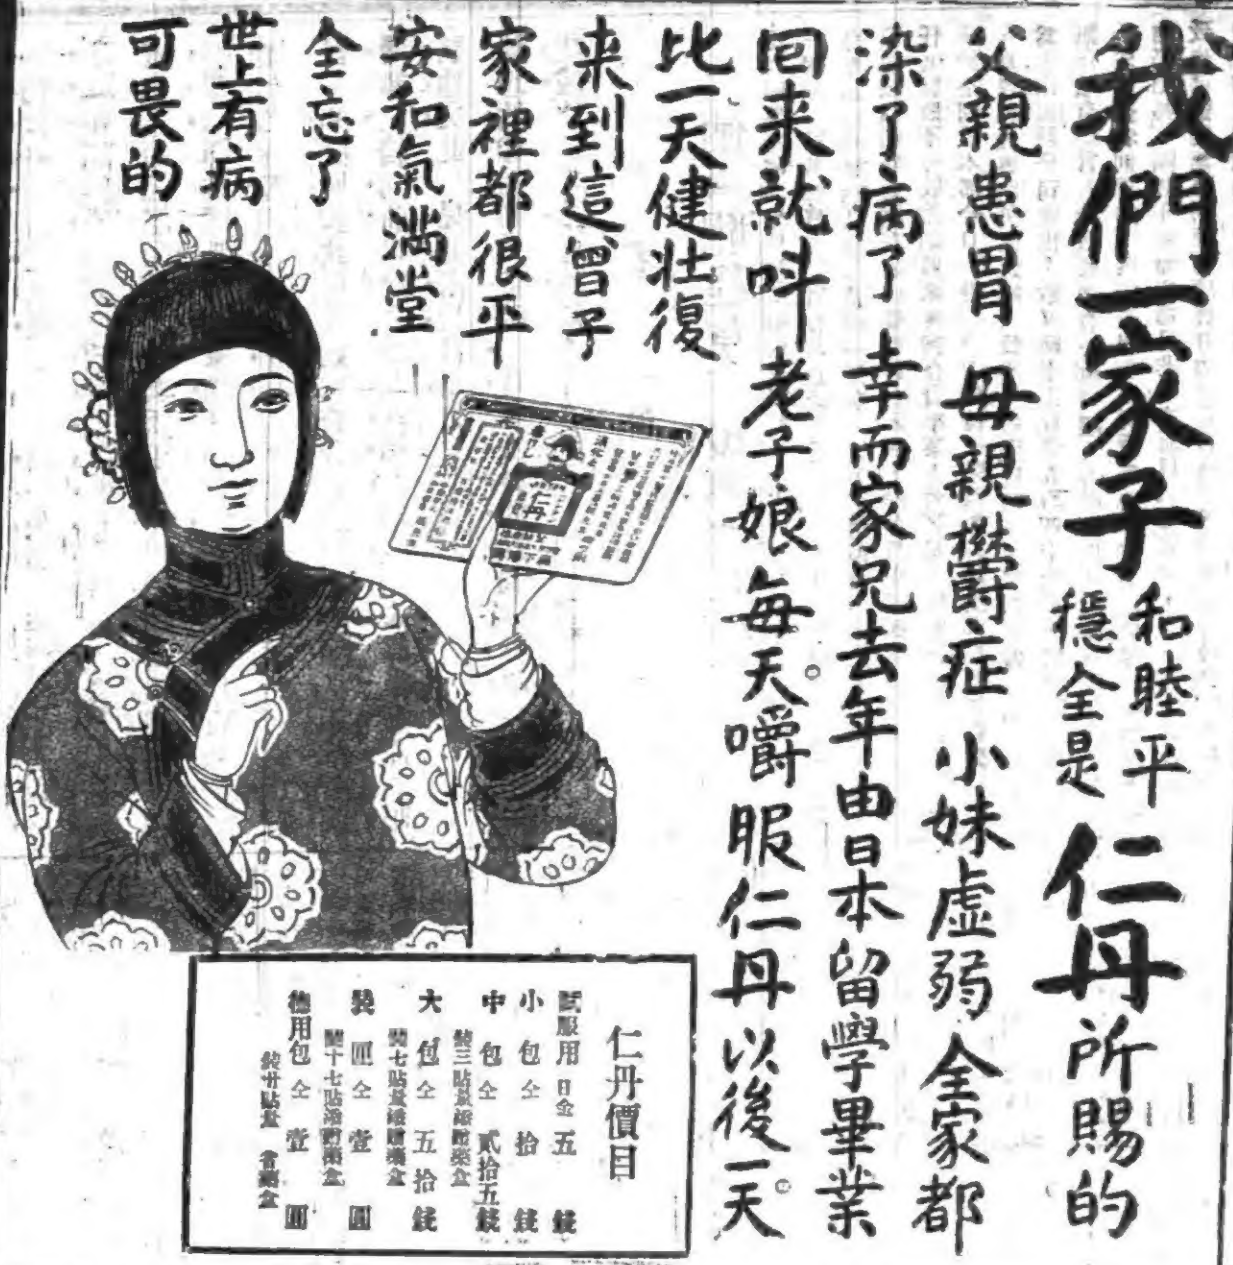 我們一家子 和睦平穩全是 仁丹 所賜的
父親患胃 母親欝症 小妹虛弱 全家都
染了病了 幸而家兄去年由日本留學畢業
回来就呌 老子娘每天嚼服仁丹以後一天
比一天健壮復
来到這曾子
家裡都很平
安和氣満堂
全忘了
世上有病
可畏的
仁丹
仁丹價目
試服用 日金 五 錢
小包仝 拾 錢
中包仝 貳拾五錢
大包仝 五拾錢
裝匣仝 壹 圓
德用包仝 壹 圓